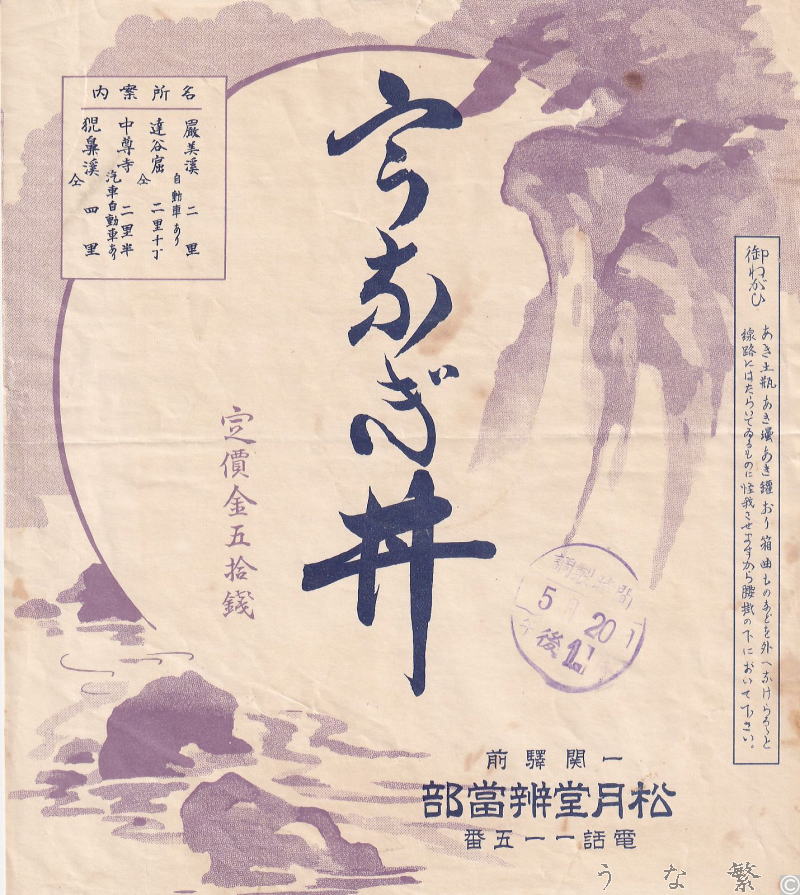 御ねがひ
あき土瓶あき壜あき罐おり箱曲ものなどを外へなげらるゝと
線路にはたらいてゐるものに怪我させますから腰掛の下において下さい。
うなぎ丼
定價金五拾錢
名所案内
嚴美溪 二里
自動車あり
達谷窟 仝 二里十丁
中尊寺 二里半
汽車自動車あり
猊鼻溪 仝 四里
調製時間
5月20日
午後
一關驛前
松月堂辨當部
電話一一五番
うな繁
©